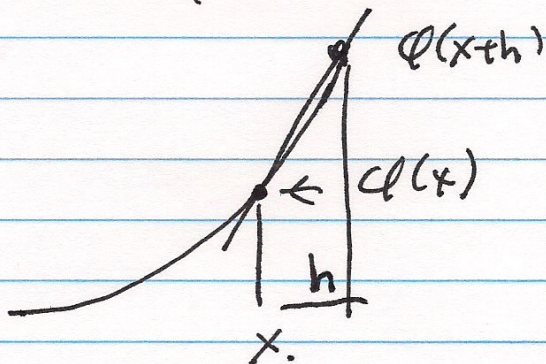 φ(x+h)
← φ(x)
h
x.